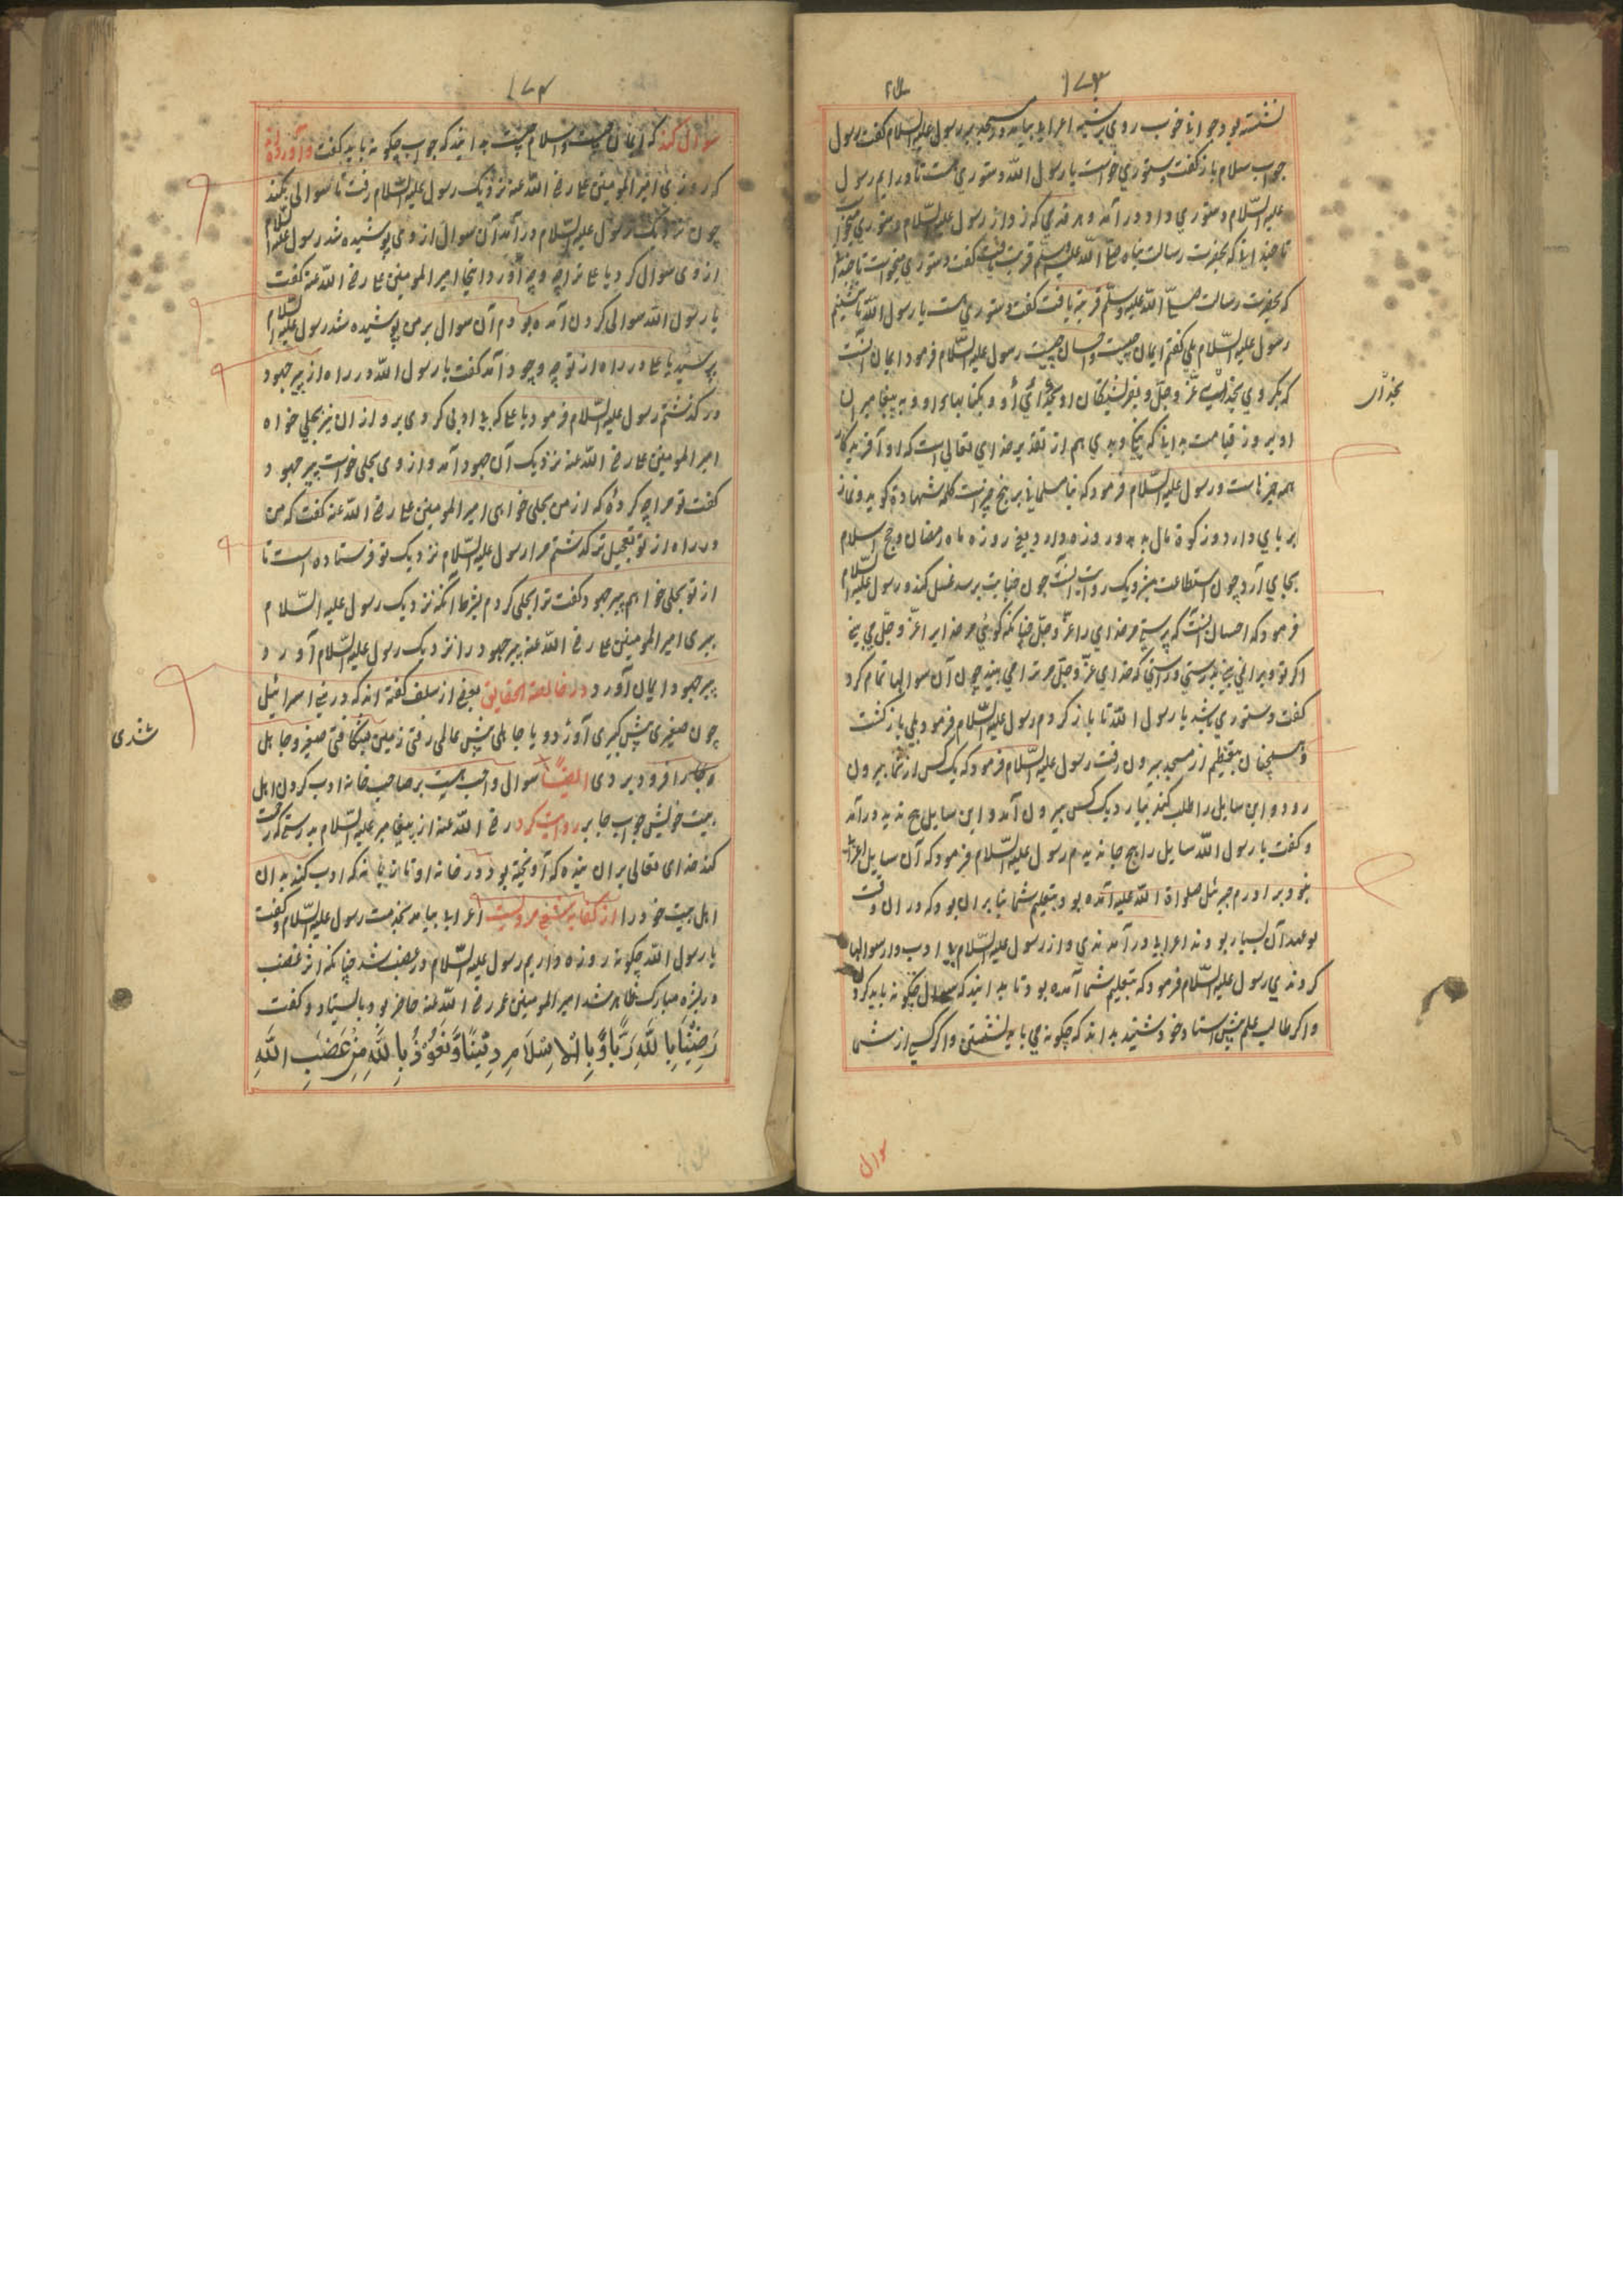 ۱۷۳
نشسته بود جوانی خوب روی بر شبه اعرابی بیامد و در مسجد بر رسول علیه السلام گفت رسول
جواب سلام باز گفت دستوری خواست یا رسول الله دستوری هست تا درایم رسول
علیه السّلام دستوری داد درآمد و هر قدمی که زد از رسول علیه السّلام دستوری میخواست
تا چندانکه بحضرت رسالت پناه صلی الله علیه وسلم قربت یافت گفت دستوری میخواست تا
که بحضرت رسالت صلی الله علیه وسلّم قربت یافت گفت دستوری هست یا رسول الله تا بنشینم
رسول علیه السّلام بلی گفتم ایمان چیست و احسان چیست رسول علیه السّلام فرمود ایمان آنست
که بگروی بخدای عزّ وجلّ و بفرشتگان او و بکتابهاء او و به پیغامبران
او و بروز قیامت بدانکه نیکی و بدی هم از تقدیر خدای تعالی است که او آفریدگار
همه چیزهاست و رسول علیه السّلام فرمود که بناء مسلمانی بر پنج چیز است کلمه شهادة گوید و نماز
بر پای دارد و زکوة مال بدهد و روزه دارد یعنی روزه ماه رمضان و حج اسلام
بجای آرد چون استطاعت بیند و یک روایت آنست چون جنابت برسد غسل کند و رسول علیه السّلام
فرمود که احسان آنست که پرستی مر خدای را عزّ وجلّ چنانکه گوئی مر خدایرا عزّ وجلّ می بینی
اگر تو ویرا نمی بینی بدرستی و راستی که خدای عزّ وجلّ مر ترا می بیند چون آن سوالها تمام کرد
گفت دستوری باشد یا رسول الله تا باز گردم رسول علیه السّلام فرمود بلی باز گشت
و همچنان بتعظیم از مسجد بیرون رفت رسول علیه السّلام فرمود که یک کس از شما بیرون
رود و این سایل را طلب کند بیارد یک کس بیرون آمد و این سایل هیچ ندید درآمد
و گفت یا رسول الله سایل را هیچ جا ندیدم رسول علیه السّلام فرمود که آن سایل اعرابی
نبود برادرم جبرئیل صلواة الله علیه آمده بود بتعلیم شما بنابران بود که دران وقت
بوعهد آن بسیار بودند اعرابی درآمدندی و از رسول علیه السّلام بی ادب وار سوالها
کردندی رسول علیه السّلام فرمود که بتعلیم شما آمده بود تا بدانید که سوال چگونه باید کرد
و اگر طالب علم پیش استاد خود شیند بداند که چگونه می باید نشستن و اگر کسی از شما
بخدای
سوال
۱۷۴
سوال کند که ایمان چیست و اسلام چیست بدانید که جواب چگونه باید گفت و آورده اند
که روزی امیر المومنین علی رضی الله عنه نزدیک رسول علیه السّلام رفت تا سوالی بکند
چون نزدیک رسول علیه السّلام درآمد آن سوال از وی پوشیده شد رسول علیه السّلام
از وی سوال کرد یا علی ترا چه آورد اینجا امیر المومنین علی رضی الله عنه گفت
یا رسول الله سوالی کردن آمده بودم آن سوال بر من پوشیده شد رسول علیه السّلام
پرسید یا علی در راه از تو چه وجود آمد گفت یا رسول الله در راه از پیر جهود
در گذشتم رسول علیه السّلام فرمود یا علی که بی ادبی کردی برو ازان پیر بحلی خواه
امیر المومنین علی رضی الله عنه نزدیک آن جهود آمد و از وی بحلی خواست پیر جهود
گفت تو مرا چه کردۀ که از من بحلی خواهی امیر المومنین علی رضی الله عنه گفت که من
در راه از تو بتعجیل تر گذشتم مرا رسول علیه السّلام نزدیک تو فرستاده است تا
از تو بحلی خواهم پیر جهود گفت ترا بحلی کردم بشرط آنکه نزدیک رسول علیه السّلام
ببری امیر المومنین علی رضی الله عنه پیر جهود را نزدیک رسول علیه السّلام آورد
پیر جهود ایمان آورد در خالصة الحقایق بعضی از سلف گفته اند که در بنی اسرائیل
چون صغیری پیش کبیری آوردو یا جاهلی پیش عالمی رفتی زمین بشکافتی صغیر و جاهل
را فرو بردی ایضًا سوالی واجب هست بر صاحب خانه ادب کردن اهل
بیت خویش جواب جابر روایت کرد رضی الله عنه از پیغامبر علیه السّلام بدرستی که رحمت
کند خدای تعالی بران بنده که آویخته بود در خانه او تازیانه که ادب کند بدان
اهل بیت خود را از کفایه شعبی مرویست اعرابی بیامد بخدمت رسول علیه السّلام گفت
یا رسول الله چگونه روزه داریم رسول علیه السّلام در غضب شد چنانکه اثر غضب
در بشره مبارک ظاهر شد امیر المومنین عمر رضی الله عنه حاضر بود بایستاد و گفت
رَضِیْنَا بِاللَّهِ رَبًّا وَّبِالْاِسْلَامِ دِیْنًا وَّنَعُوْذُ بِاللَّهِ مِنْ غَضَبِ اللَّهِ
شدی